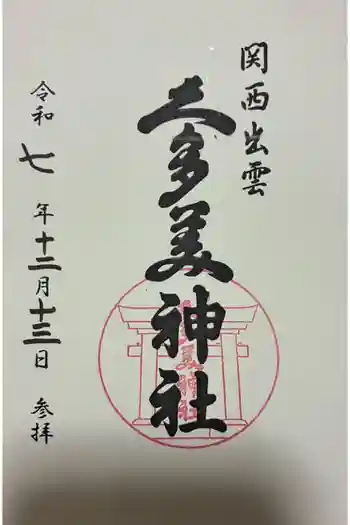 関西出雲
久多美神社
令和七年十二月十三日 参拝
美神社